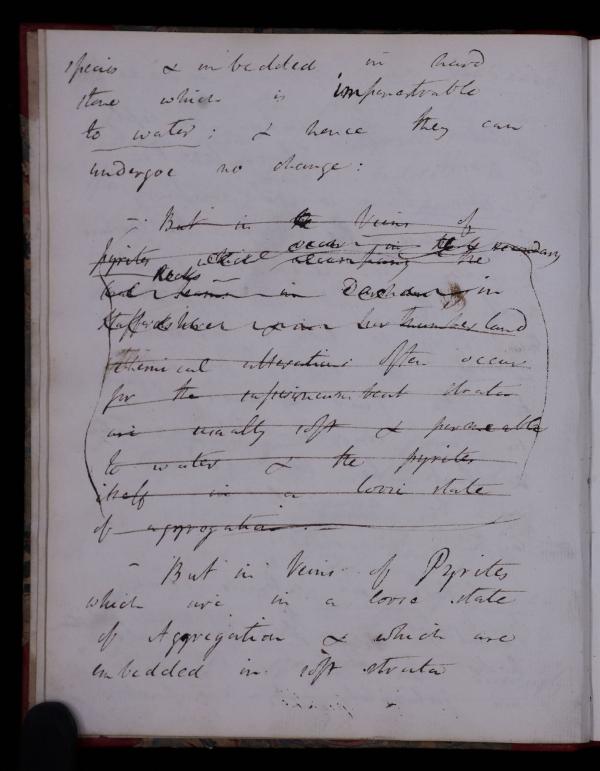 species & imbedded in hard
stone which is impenetrable
to water: & hence they can
undergoe no change:
– But in the Veins of
occur in the secondary
pyrites which accompany the
Rocks
coal seams in Durham in
Staffordshire & in Northumberland
chemical alterations often occur
for the superincumbent strata
are usually soft & permeable
to water & the pyrites
itself in a loose state
of aggregation
– But in Veins of Pyrites
which are in a loose state
of Aggregation & which are
embedded in soft strata